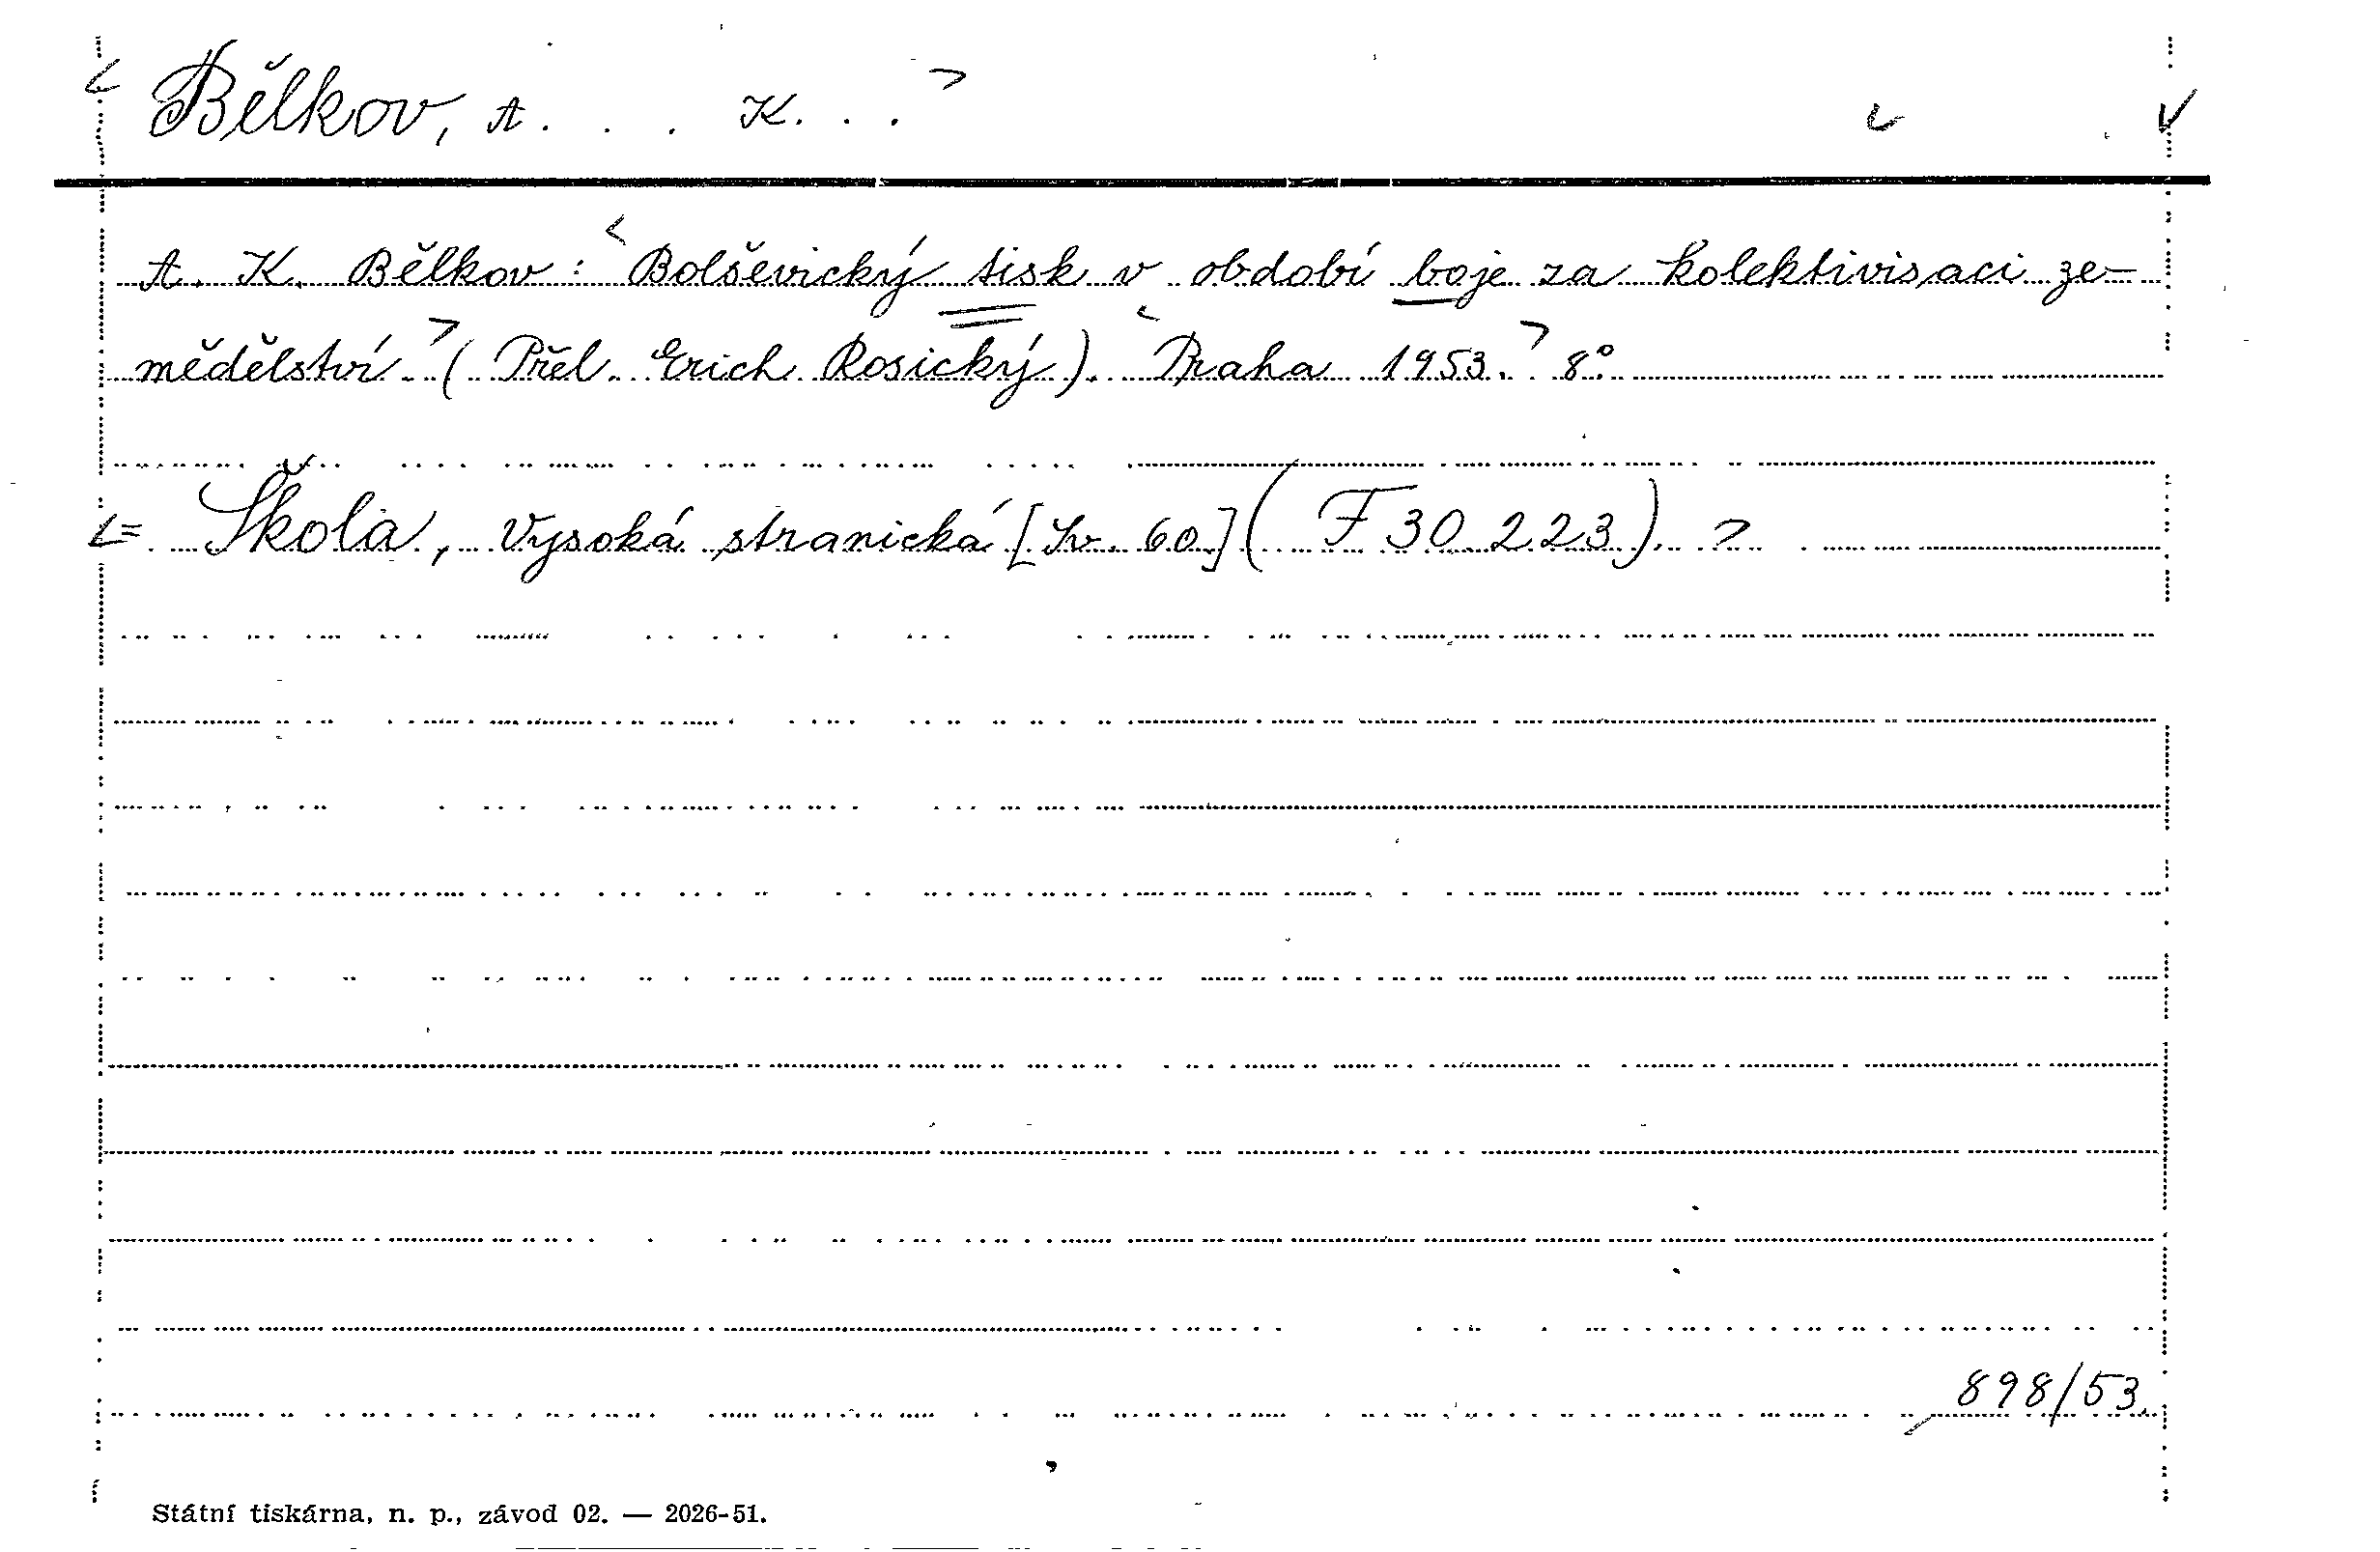 < Bělkov, A. . . K. . . >
A. K. Bělkov: < Bolševický tisk v období boje za kolektivisaci ze-
mědělství. > (Přel. Erich Rosický). < Praha 1953. > 8°.
<= Škola, Vysoká stranická [Sv. 60] (F 30 223). >
898/53.
Státní tiskárna, n. p., závod 02. — 2026-51.